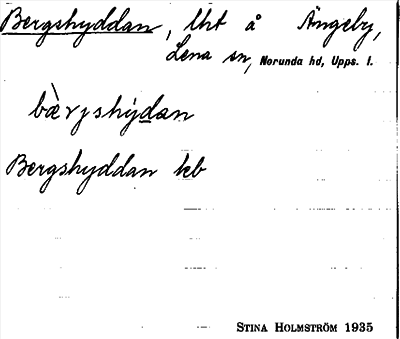 Bergshyddan, lht å Ängeby,
Lena sn, Norunda hd, Upps. l.
bæ̀rjshýdan
Bergshyddan kb
STINA HOLMSTRÖM 1935